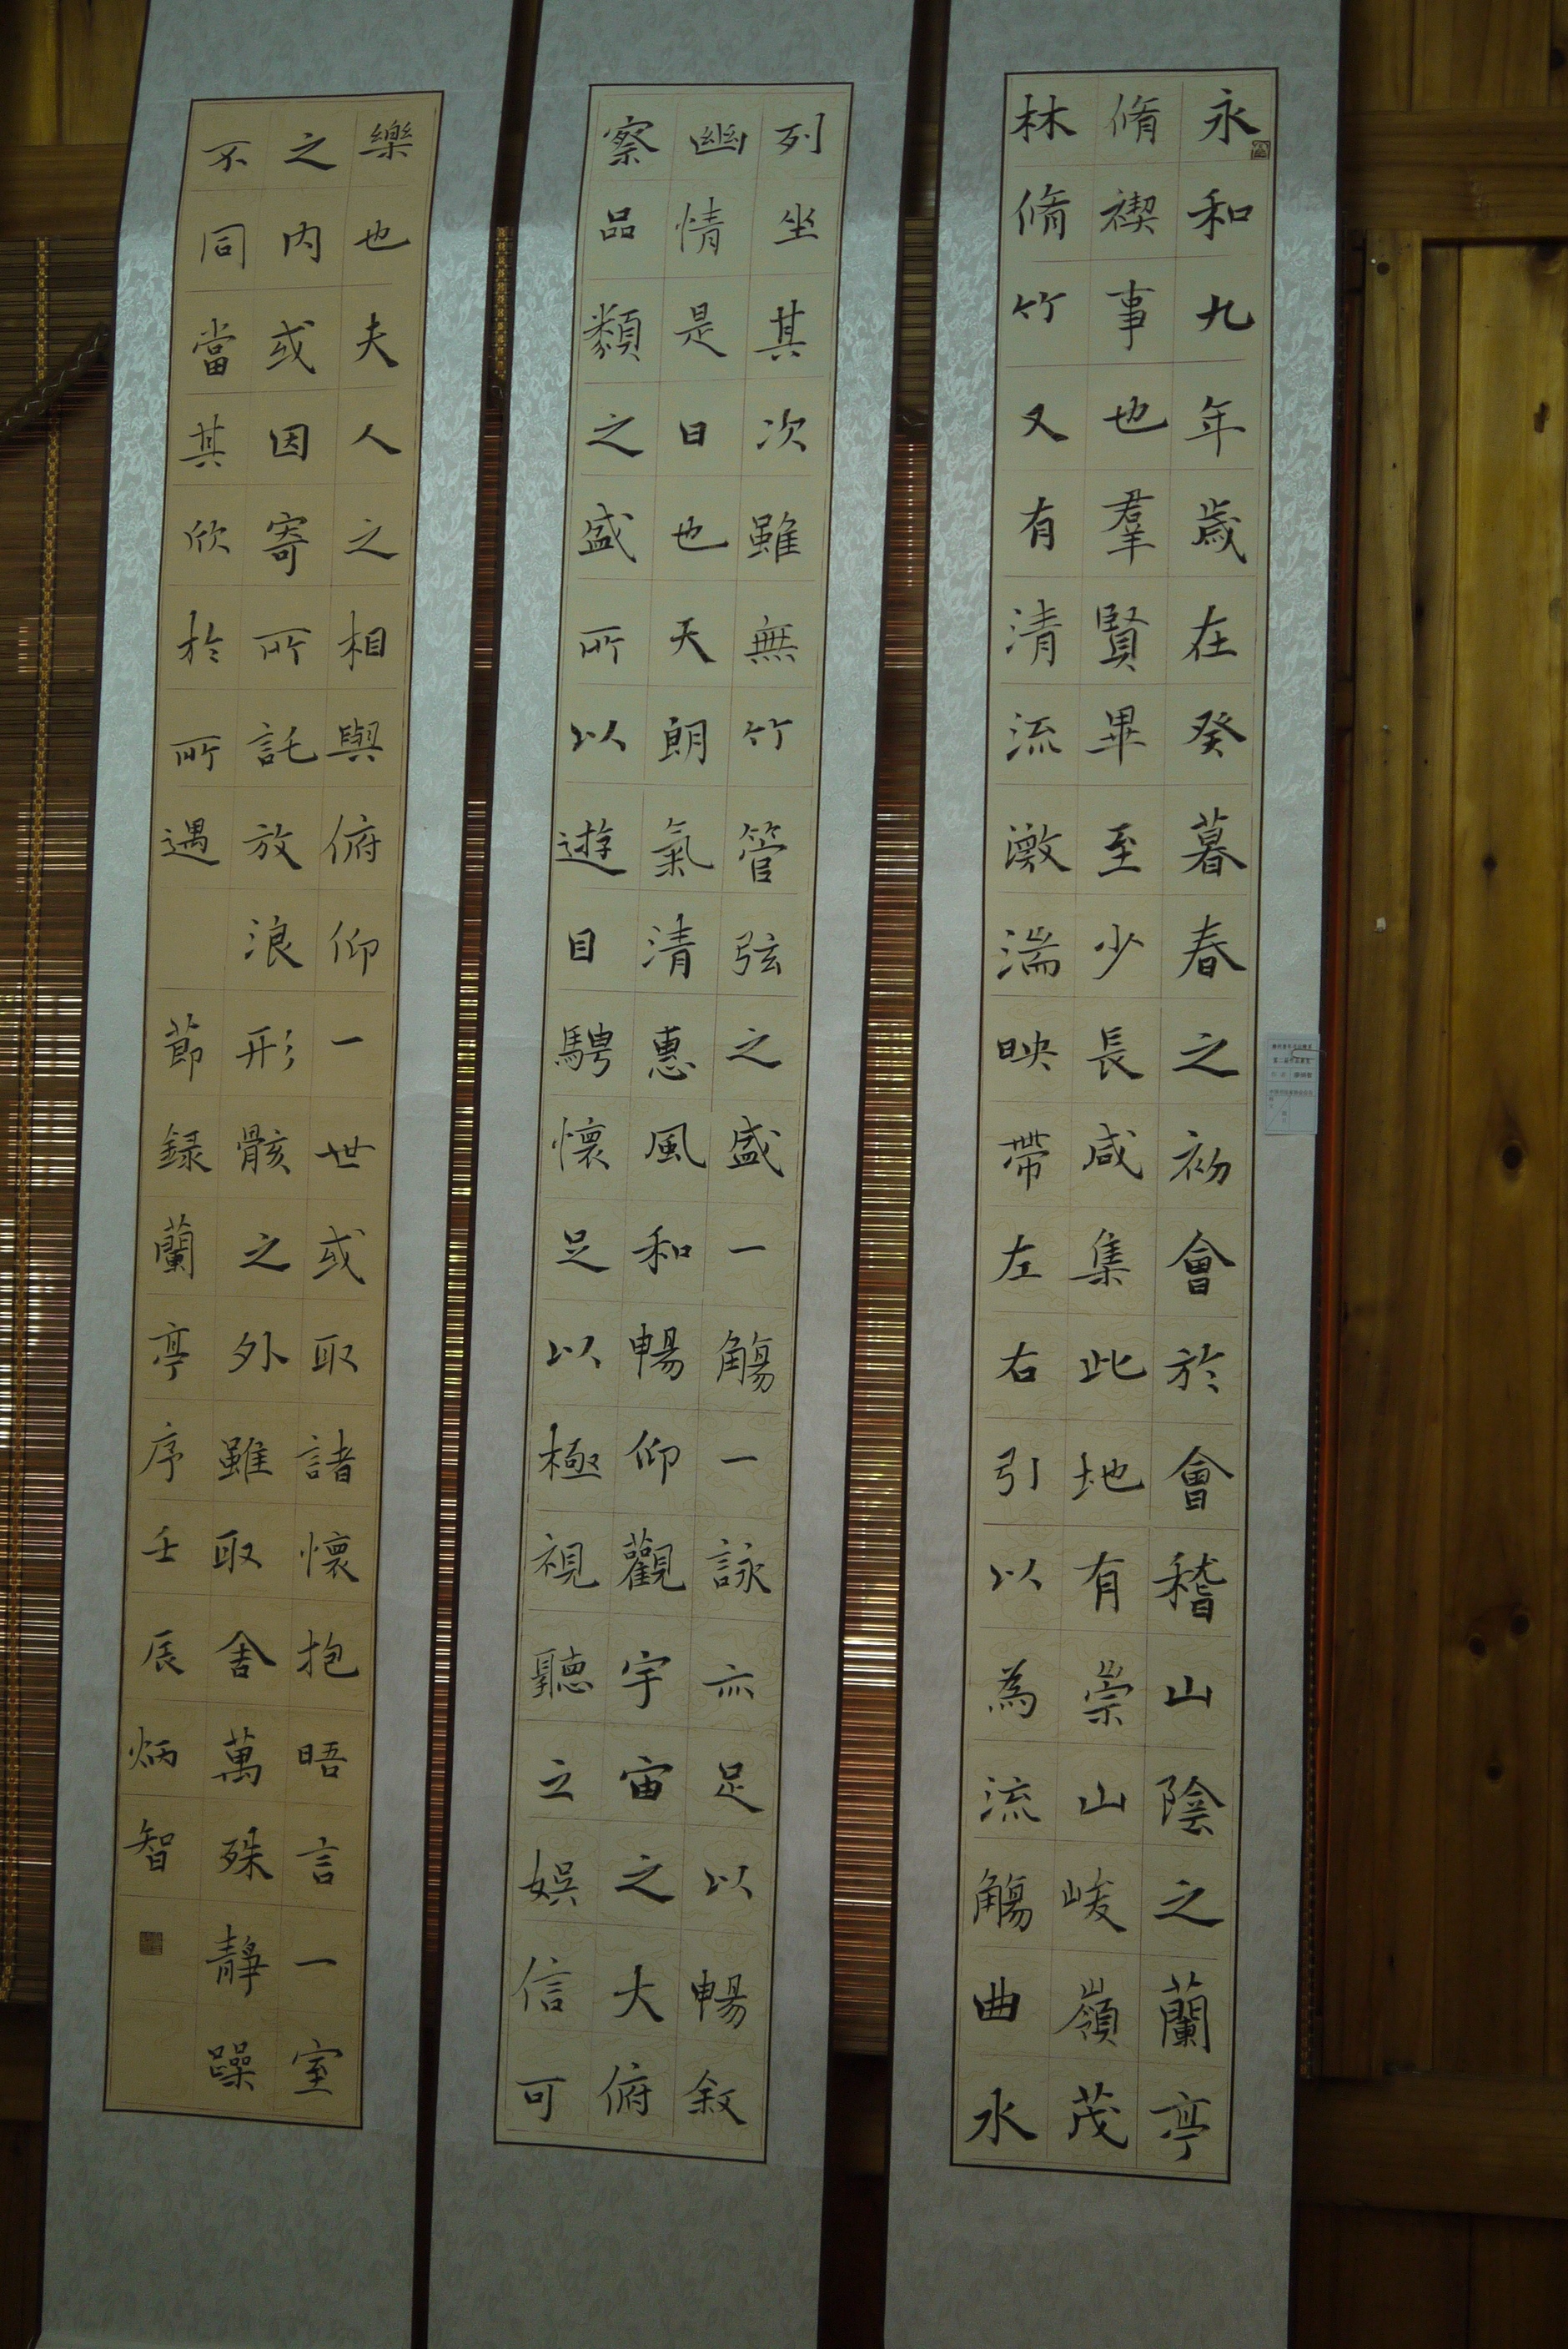 永和九年歲在癸暮春之初會於會稽山陰之蘭亭
脩禊事也羣賢畢至少長咸集此地有崇山峻嶺茂
林脩竹又有清流激湍映帶左右引以為流觴曲水
列坐其次雖無竹管弦之盛一觴一詠亦足以暢敘
幽情是日也天朗氣清惠風和暢仰觀宇宙之大俯
察品類之盛所以遊目騁懷足以極視聽之娛信可
樂也夫人之相與俯仰一世或取諸懷抱晤言一室
之內或因寄所託放浪形骸之外雖取舍萬殊靜躁
不同當其欣於所遇 節録蘭亭序壬辰炳智